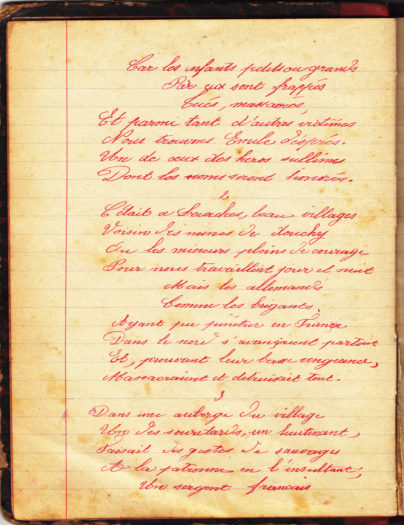 Car les enfants petits ou grands
Par eux sont frappés
Tués, massacrés,
Et parmi tant d'autres victimes
Nous trouvons Emile Després.
Un de ceux des heros sublimes
Dont les noms seront honorés.
2
C'était a Lourches, beau villages
Voisin des mines de douchy
Ou les mineurs plein de courage
Pour nous travaillent jour et nuit
Mais les allemands
Comme les brigants,
Ayant pu pénétrer en France
Dans le nord s'avançaient partout
Et, prouvant leur basse vengeance,
Massacraient et detruisait tout.
3
Dans une auberge du village
Un des soudards, un lieutenant,
Faisait des gestes de sauvages
A la patronne en l'insultant,
Un sergent francais